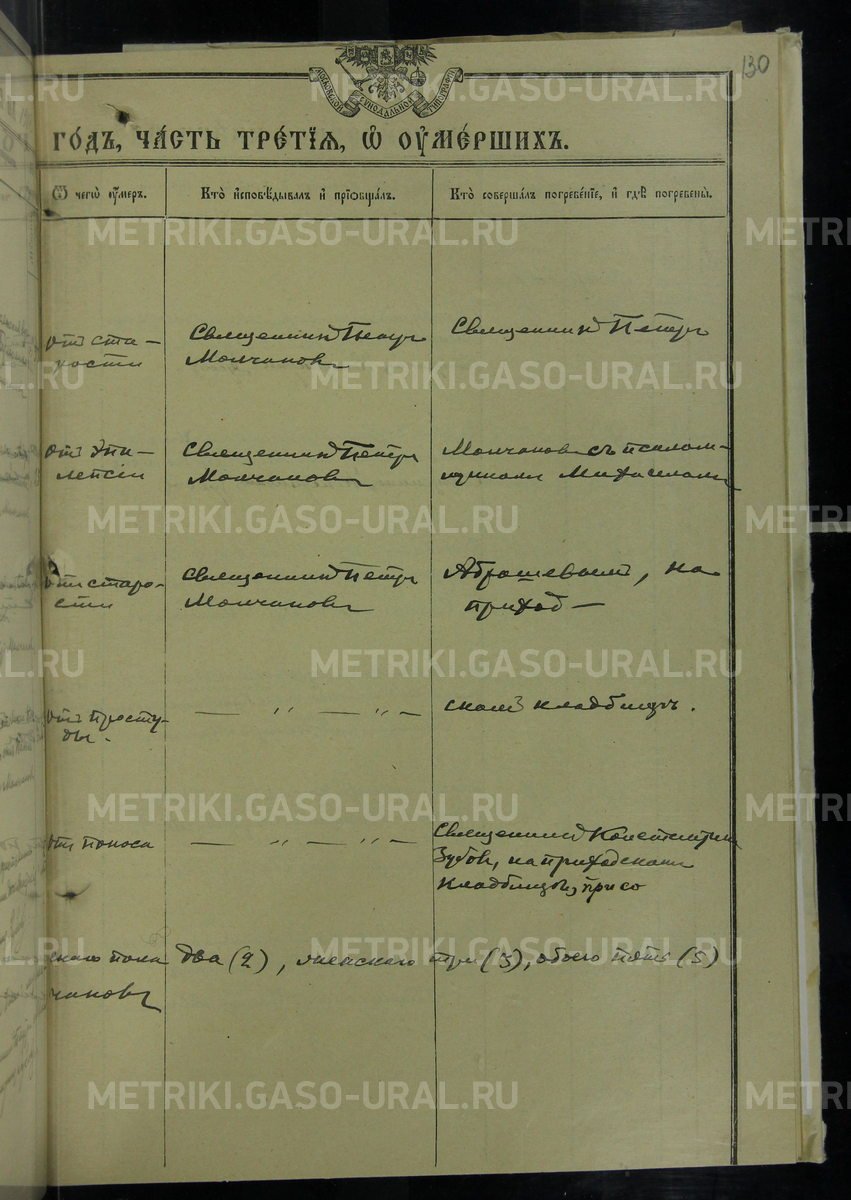 130
МОСКОВСКОЙ СѴНОДАЛЬНОЙ ТИПОГРАФІИ
го́дъ, ча́сть тре́тїѧ, ѡ҆ оу҆ме́ршихъ.
Ѿ чегѡ̀ оу҆́меръ.
Кто̀ и҆сповѣ́дывалъ и҆ прїѡбща́лъ.
Кто̀ соверша́лъ погребе́нїе, и҆ гдѣ̀ погребены̀.
отъ ста-
рости
Священникъ Петръ
Молчановъ
Священникъ Петръ
отъ эпи-
лепсіи
Священникъ Петръ
Молчановъ
Молчановъ съ псалом-
щикомъ Михаиломъ
отъ старо-
сти
Священникъ Петръ
Молчановъ
Аброшевымъ, на
приход-
отъ просту-
ды.
— " — " —
скомъ кладбищѣ.
отъ поноса
— " — " —
Священникъ Константинъ
Зубовъ, на приходскомъ
кладбищѣ, при со
скаго пола два (2), женскаго три (3), обоего пять (5)
чановъ
METRIKI.GASO-URAL.RU